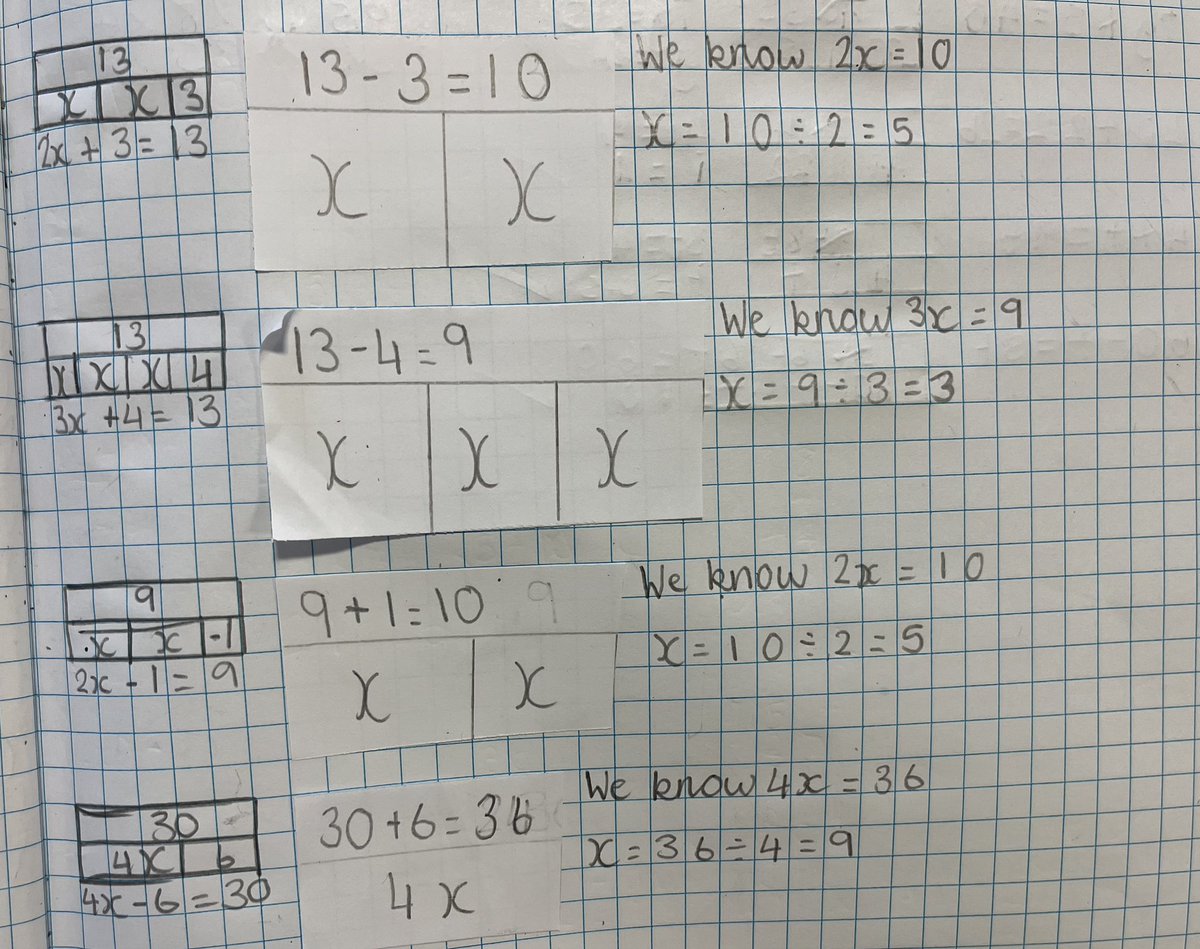 13
x x 3
2x + 3 = 13
13 - 3 = 10
x x
We know 2x = 10
x = 10 ÷ 2 = 5
13
x x x 4
3x + 4 = 13
13 - 4 = 9
x x x
We know 3x = 9
x = 9 ÷ 3 = 3
9
x x -1
2x - 1 = 9
9 + 1 = 10 9
x x
We know 2x = 10
x = 10 ÷ 2 = 5
30
4x 6
4x - 6 = 30
30 + 6 = 36
4x
We know 4x = 36
x = 36 ÷ 4 = 9